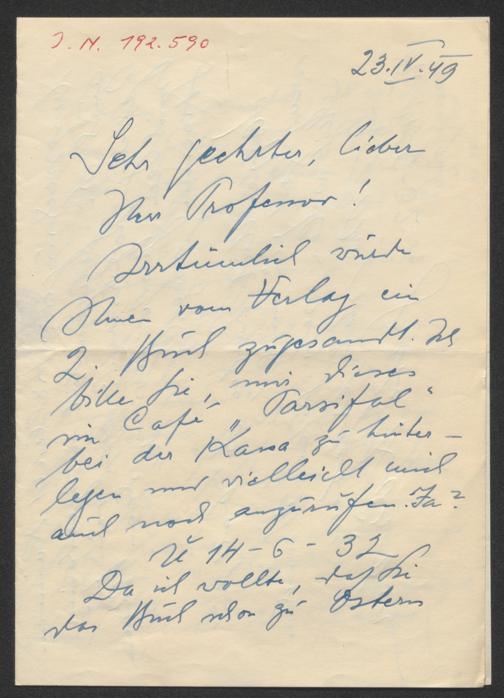 J. N. 192.590
23.IV.49
Sehr geehrter, lieber
Herr Professor!
Irrtümlich wurde
Ihnen vom Verlag ein
2. Buch zugesandt. Ich
bitte Sie, mir dieses
im Café „Parsifal“
bei der Kassa zu hinter-
legen und vielleicht mich
auch noch anzurufen. Ja?
U 14-6-32
Da ich wollte, daß Sie
das Buch schon zu Ostern